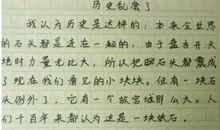 历史乱套了
我认为历史是这样的:本来全世界
的石头都是连在一起的,由于盘古开天
地时力量无比大,所以把因石头都震成
了现在我们看见的小块块。但有一块石
头例外了,它有一个故宫城那么大。人
们千百年来都认为这是一块纸石。